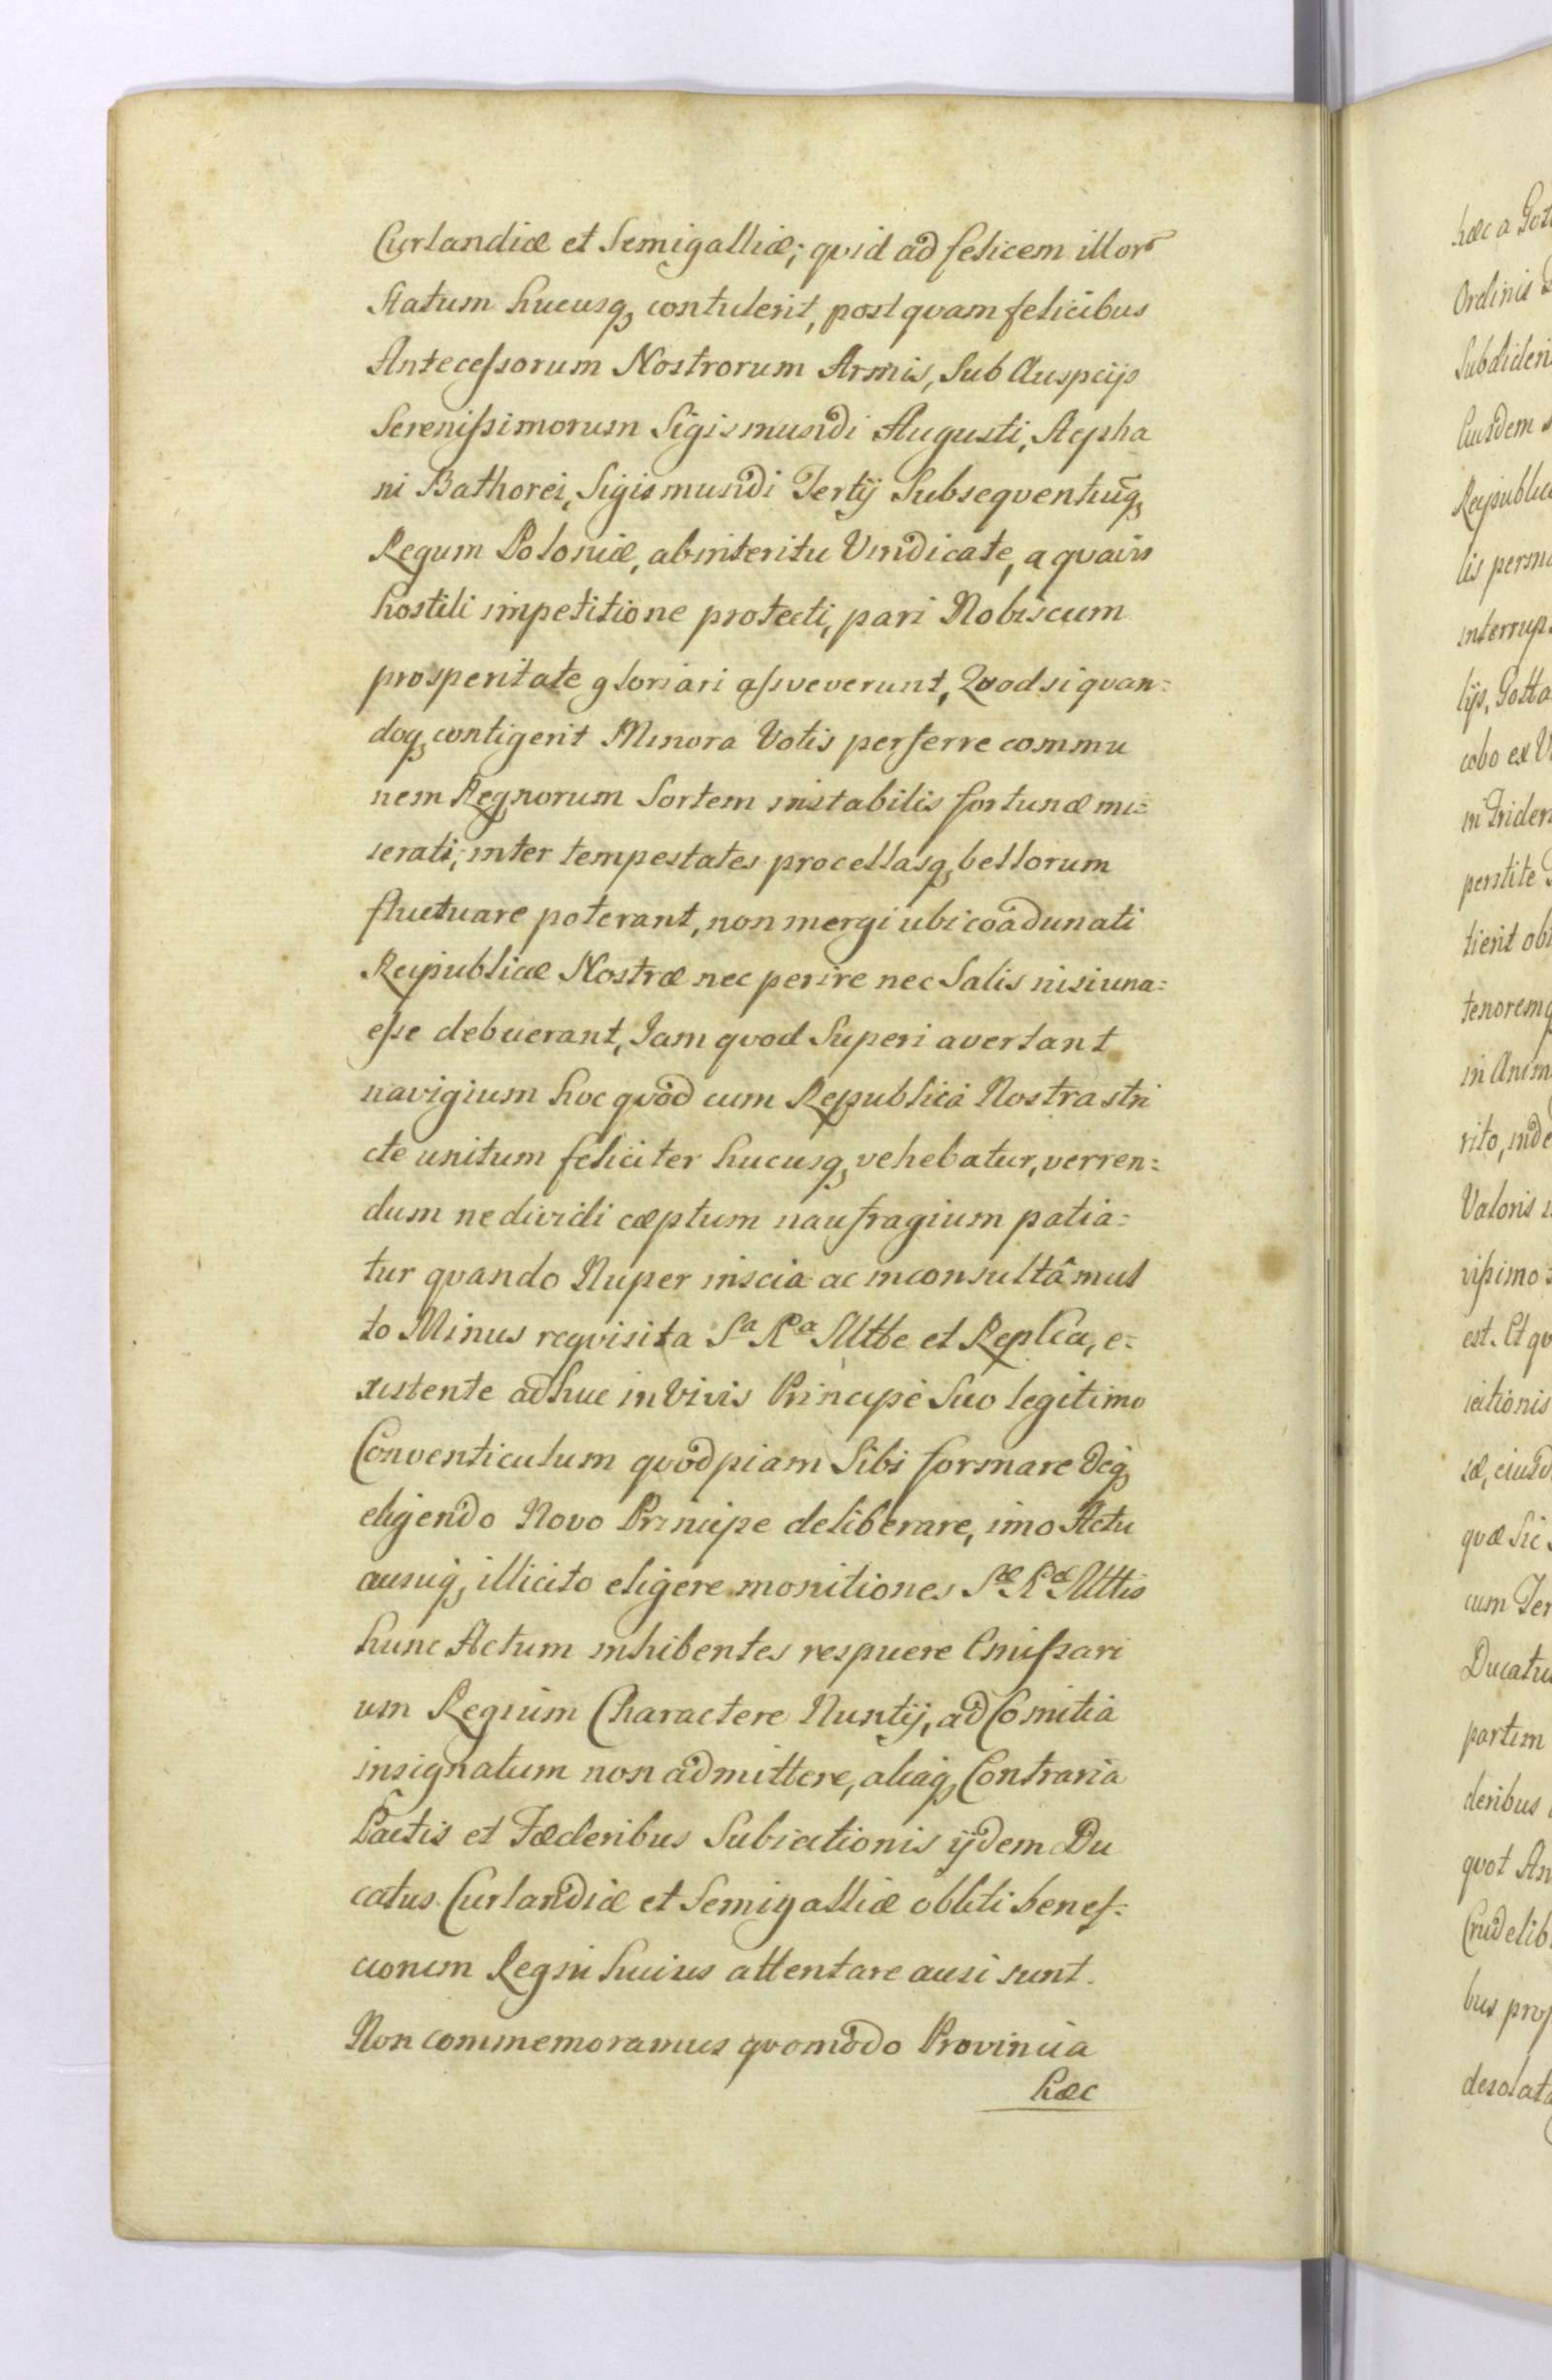 Curlandiæ et Semigalliæ; quid ad felicem illor
Statum hucusq, contulerit, postquam felicibus
Antecessorum Nostrorum Armis, Sub Auspicijs
Serenissimorum Sigismundi Augusti, Stepha
ni Bathorei, Sigismundi Tertij Subsequentiūq,
Regum Poloniæ, ab interitu Vindicate, a quavis
hostili impetitione protecti, pari Nobiscum
prosperitate gloriari assveverunt, Quod si quan=
doq, contigerit Minora Votis perferre commu
nem Regnorum Sortem instabilis fortunæ mi=
serati, inter tempestates procellasq, bellorum
fluctuare poterant, non mergi ubi coadunati
Reipublicæ Nostræ nec perire nec Salis nisi una=
esse debuerant, Jam quod Superi avertant
navigium hoc quod cum Republica Nostra stri
cte unitum feliciter hucusq, vehebatur, verren=
dum ne dividi cæptum naufragium patia=
tur quando Nuper inscia ac inconsultâ mul
to Minus requisita Sa Ra Mtte et Replica, e=
xistente adhuc in Vivis Principe Suo legitimo
Conventiculum quodpiam Sibi formare deq,
eligendo Novo Principe deliberare, imo Actu
ausuq, illicito eligere monitiones Sæ Ræ Mttis
hunc Actum inhibentes respuere Emissari
um Regium Charactere Nuntij, ad Comitia
insignatum non admittere, aliaq, Contraria
Pactis et Fæderibus Subiectionis ijdem Du
catus Curlandiæ et Semigalliæ obliti benef=
cionem Regni huius attentare ausi sunt.
Non commemoramus quomodo Provincia
hæc
hæc a Got
Ordinis
Subdideri
Eiusdem
Reipublic
lis perm
interrup
lijs, Gotta
cobo ex
in Triden
perstite
tierit
tenoremq
in Anim
rito, inde
Valoris
vissimo
est. Et qu
iectionis
sæ, eiusd
quæ Sic
cum Ter
Ducatu
partim
deribus
quot An
Crudelib
bus prof
desolat